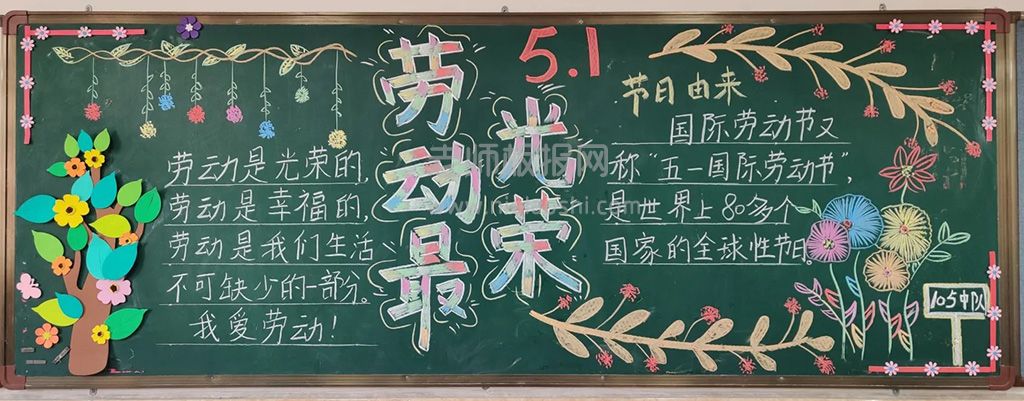 劳动最
光荣
5.1
劳动是光荣的,
劳动是幸福的,
劳动是我们生活
不可缺少的一部分。
我爱劳动!
节日由来
国际劳动节又
称“五一国际劳动节”,
是世界上80多个
国家的全球性节日。
105中队
老师板报网